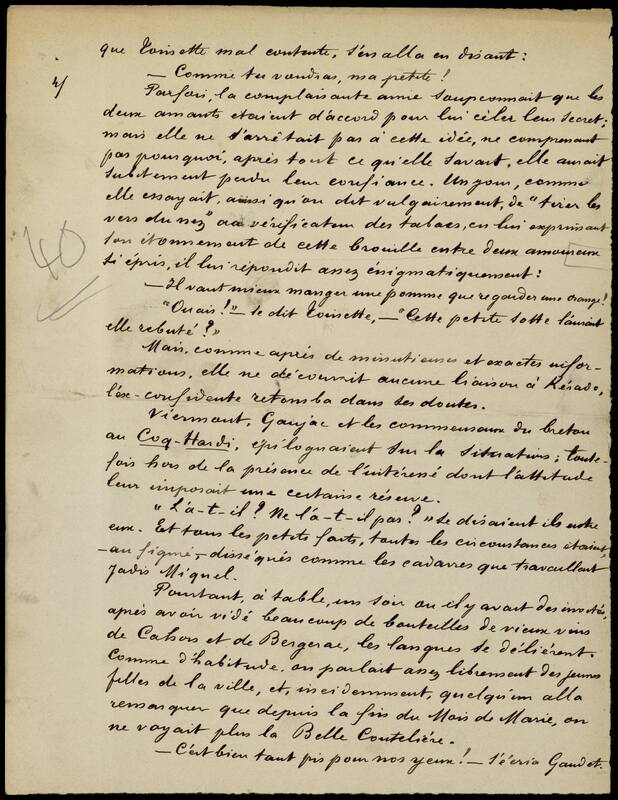 que Toinette mal contente, s'en alla en disant :
4/
— Comme tu voudras, ma petite !
Parfois, la complaisante amie soupçonnait que les
deux amants étaient d'accord pour lui céler leur secret ;
mais elle ne s'arrêtait pas à cette idée, ne comprenant
pas pourquoi, après tout ce qu'elle savait, elle aurait
subitement perdu leur confiance. Un jour, comme
elle essayait, ainsi qu'on dit vulgairement, de "tirer les
vers du nez" au vérificateur des tabacs, en lui exprimant
40
son étonnement de cette brouille entre deux amoureux
si épris, il lui répondit assez énigmatiquement :
— Il vaut mieux manger une pomme que regarder une orange !
"Ouais !" — se dit Toinette, — "Cette petite sotte l'aurait
elle rebuté ?"
Mais, comme après de minutieuses et exactes infor-
mations, elle ne découvrit aucune liaison à Kérado,
l'ex-confidente retomba dans ses doutes.
Viermont, Gaujac et les commensaux du breton
au Coq-Hardi, épiloguaient sur la situation ; toute-
fois hors de la présence de l'intéressé dont l'attitude
leur imposait une certaine réserve.
"L'a-t-il ? Ne l'a-t-il pas ?" se disaient ils entre
eux. Et tous les petits faits, toutes les circonstances étaient,
— au figuré, — disséqués comme les cadavres que travaillait
jadis Miquel.
Pourtant, à table, un soir où il y avait des invités,
après avoir vidé beaucoup de bouteilles de vieux vins
de Cahors et de Bergerac, les langues se délièrent.
Comme d'habitude, on parlait assez librement des jeunes
filles de la ville, et, incidemment, quelqu'un alla
remarquer que depuis la fin du Mois de Marie, on
ne voyait plus la Belle Coutelière.
— C'est bien tant pis pour nos yeux ! — s'écria Gaudet.